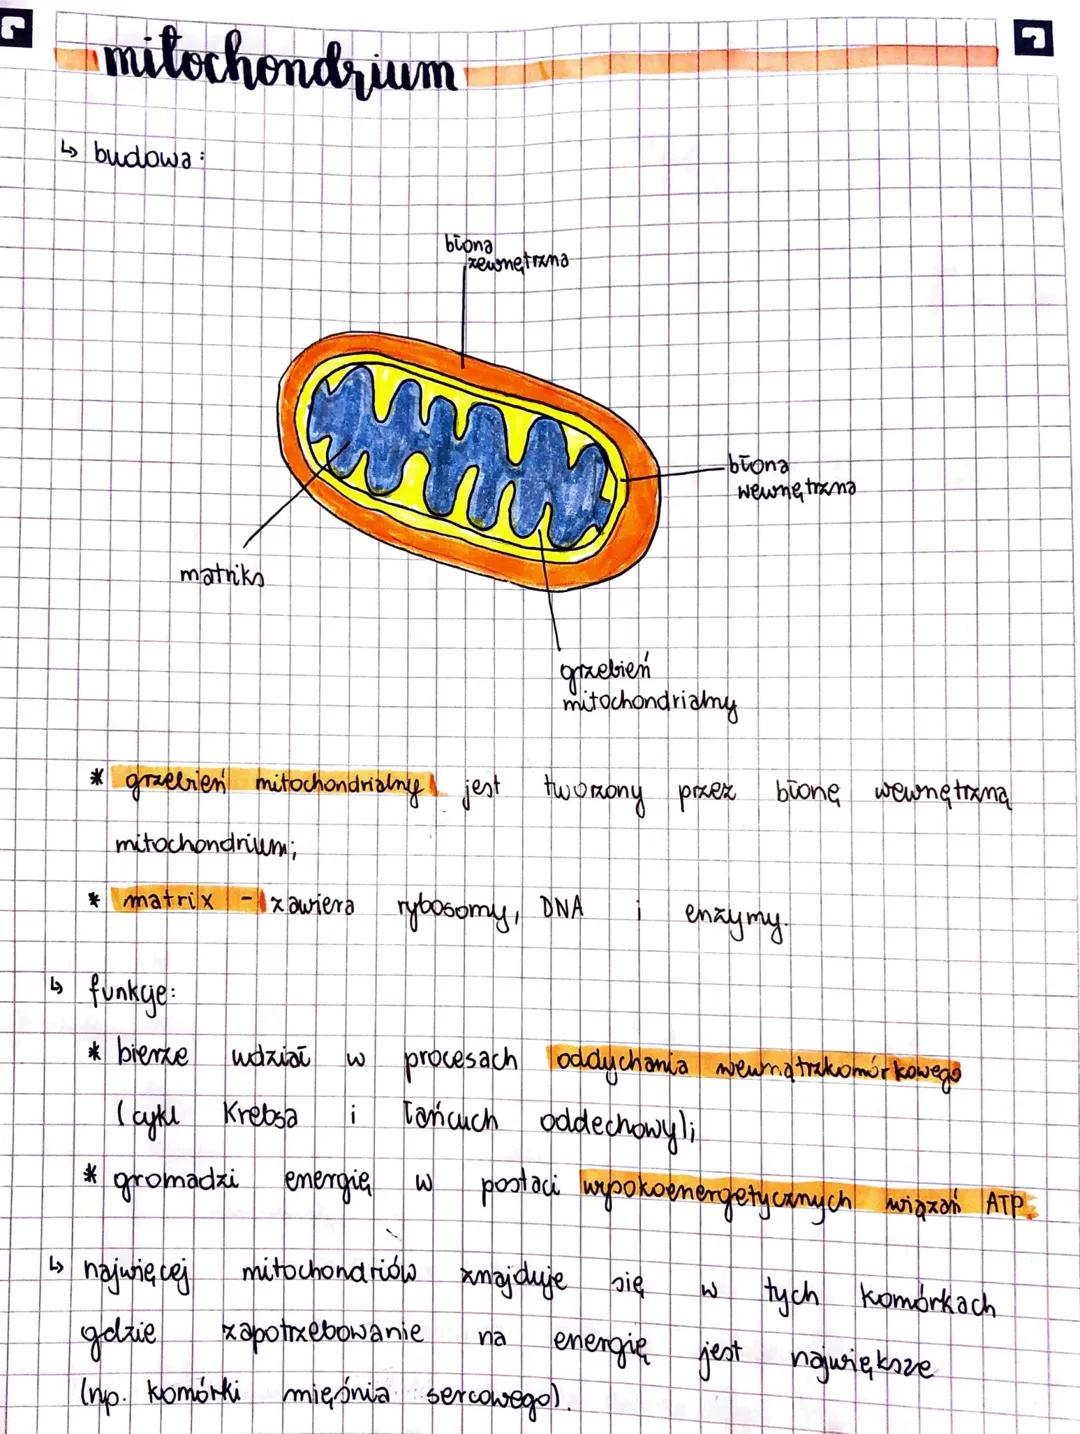 mitochondrium
↳ budowa:
błona
zewnętrzna
błona
wewnętrzna
matriks
grzebień
mitochondrialny
* grzebień mitochondrialny jest tworzony przez błonę wewnętrzną
mitochondrium;
* matrix - zawiera rybosomy, DNA i enzymy.
↳ funkcje:
* bierze udział w procesach oddychania wewnątrzkomórkowego
(cykl Krebsa i łańcuch oddechowy);
* gromadzi energię w postaci wysokoenergetycznych wiązań ATP.
↳ najwięcej mitochondriów znajduje się w tych komórkach
gdzie zapotrzebowanie na energię jest największe
(np. komórki mięśnia sercowego).